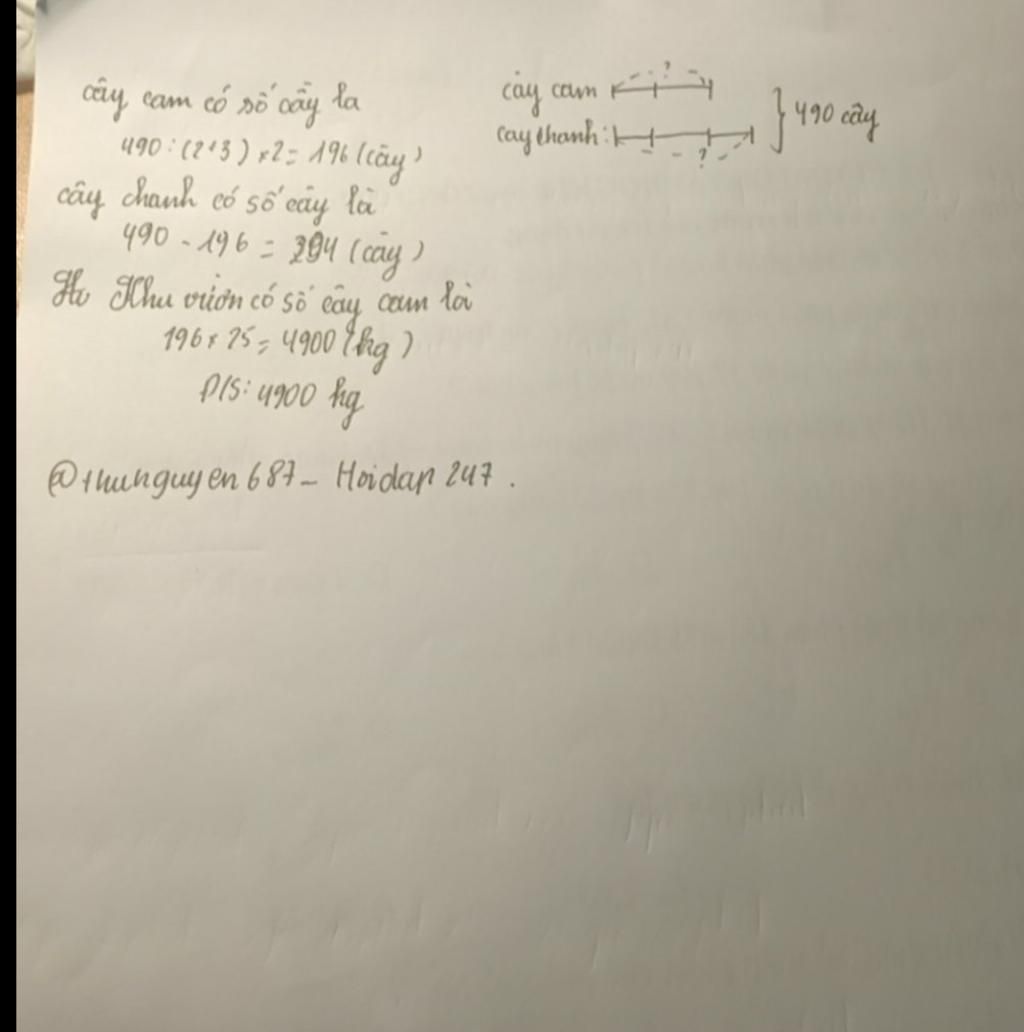 cây cam có số cây la
490 : (2+3) × 2 = 196 (cây)
cây chanh có số cây là
490 - 196 = 294 (cây)
Khu vườn có số cây cam là
196 × 25 = 4900 (kg)
Đ/S: 4900 kg
@thunguyen687 - Hoidap 247.
cây cam ?
cay chanh: ?
490 cây